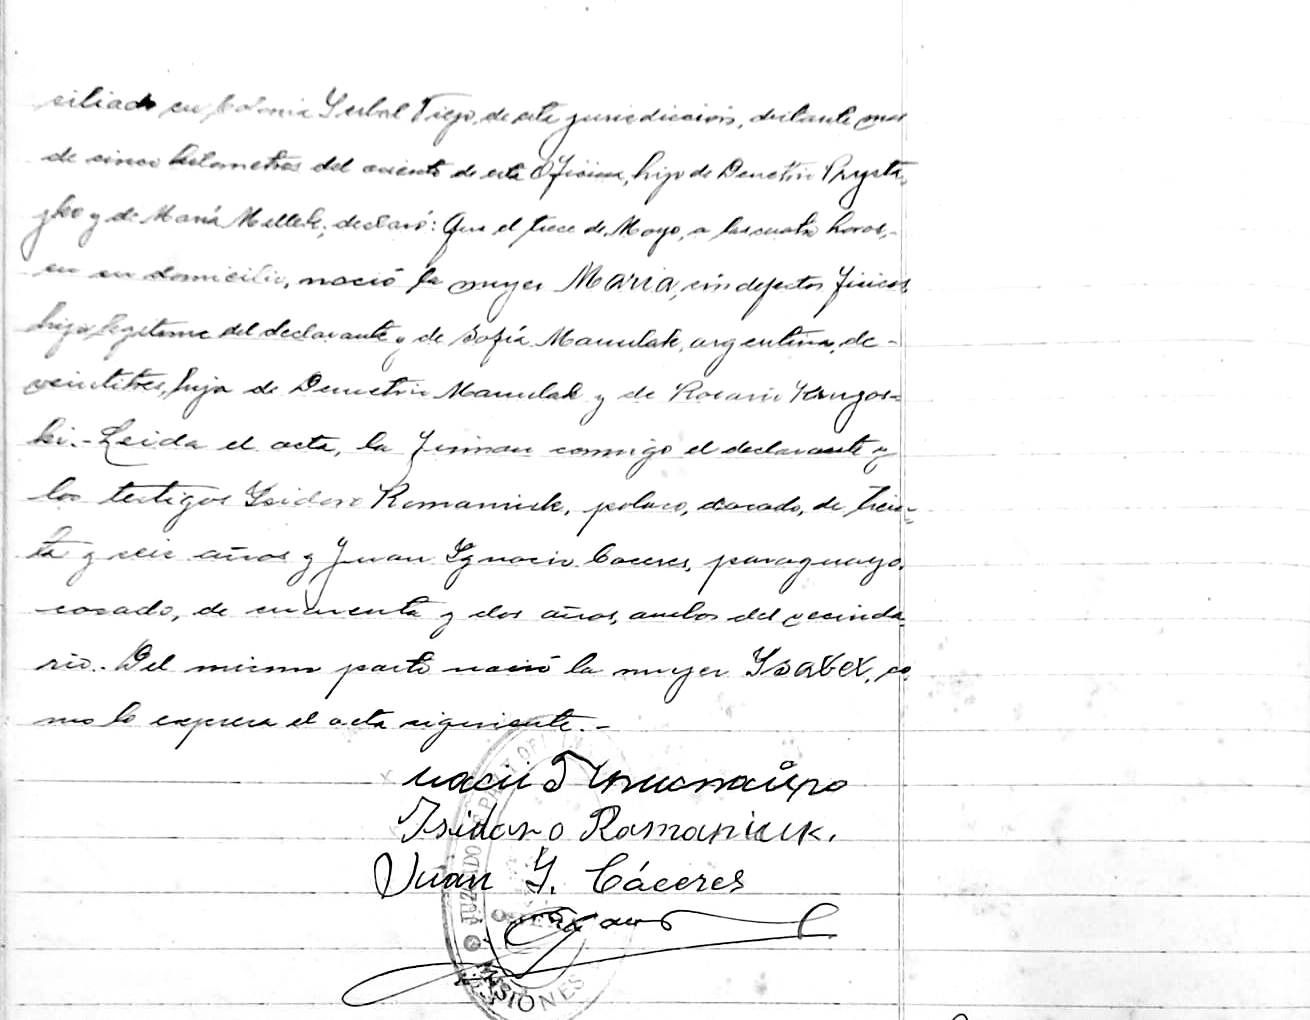 ciliado en Colonia Yerbal Viejo, de esta jurisdicción, distante mas
de cinco kilometros del asiento de esta Oficina, hijo de Demetrio Prysta-
zko y de María Mellek, declaró: Que el trece de Mayo, a las cuatro horas,-
en su domicilio, nació la mujer Maria, sin defectos fisicos,
hija legitima del declarante y de Sofía Manulak, argentina, de-
veintitres, hija de Demetrio Manulak y de Rosario
ki.- Leida el acta, la firman conmigo el declarante y
los testigos Ysidoro Romaniuk, polaco, casado, de trein-
ta y seis años y Juan Ygnacio Caceres, paraguayo,
casado, de cuarenta y dos años, ambos del vecinda-
rio.- Del mismo parto nació la mujer Ysabel, co-
mo lo expresa el acta siguiente.-
Isidoro Romaniuk.
Juan Y. Cáceres
JUZGADO DE PAZ
MISIONES